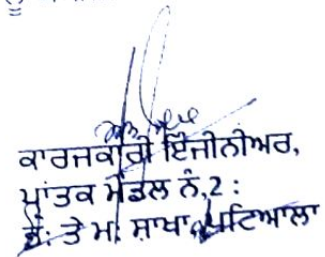 ਕਾਰਜਕਾਰੀ ਇੰਜੀਨੀਅਰ,
ਪ੍ਰਾਂਤਕ ਮੰਡਲ ਨੰ,2 :
ਭੰ: ਤੇ ਮ: ਸ਼ਾਖਾ, ਪਟਿਆਲਾ